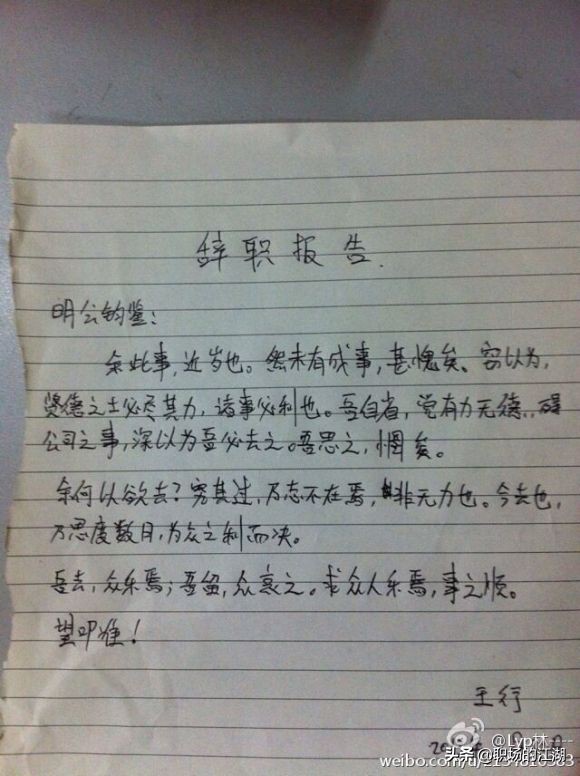 辞职报告.
明公钧鉴:
余此事,近岁也。然未有成事,甚愧矣。窃以为,
贤德之士必尽其力,诸事必利也。吾自省,觉有力无德,碍
公司之事,深以为吾必去之。吾思之,惆矣。
余何以欲去?穷其过,乃志不在焉,非无力也。今去也,
乃思度数月,为众之利而决。
吾去,众乐焉;吾留,众哀之。求众人乐焉,事之顺。
望叩准!
王行
@Lyp林
头条 @职场的江湖